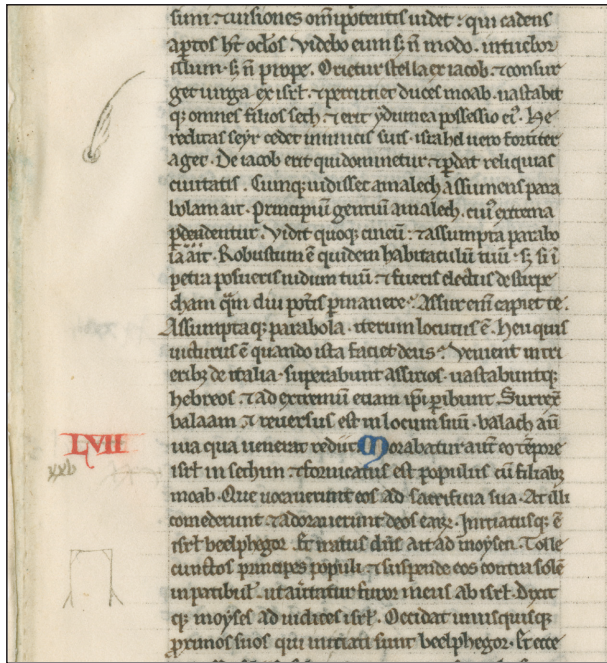 sumꝰ. ⁊ uisiones om̅ipotentis uidet: qui cadens
aptos h̅t oc̅los. Videbo eum s; n̅ modo. intuebor
illum. s; n̅ prope. Orietur stella ex iacob. ⁊ consur
get uirga ex isrl̅. ⁊ percutiet duces moab. uastabit
q; omnes filios sech. ⁊ erit ydumea possessio eiꝰ. He
reditas seyr cedet inimicis suis. israhel uero fortiter
aget. De iacob erit qui dominetur ⁊ ꝑdat reliquias
ciuitatis. Cumq; uidisset amalech assumens para
bolam ait. Principiu̅ gentiu̅ amalech. cuiꝰ extrema
ꝑdendentur. Vidit quoq; cineu̅: ⁊ assumpta parabo
la ait. Robustum e̅ quidem habitaculu̅ tuu̅. s; si i̅
petra posueris nidum tuu̅. ⁊ fueris electus de stirpe
cham qm̅ diu potis ꝑmanere. Assur eni̅ capiet te.
Assumptaq; parabola. iterum locutus e̅. Heu quis
uicturus e̅ quando ista faciet deus. Venient in tri
erib; de italia. superabunt assirios. uastabuntq;
hebreos. ⁊ ad extremu̅ etiam ip̅i ꝑibunt. Surrex̅
balaam. ⁊ reuersus est in locum suu̅. balach au̅
LVII uia qua uenerat rediit. Morabatur aut̅ eo te̅pore
xxv isrl̅ in sethim ⁊ fornicatus est populus cu̅ filiab;
moab. Que uocauerunt eos ad sacrificia sua. At illi
comederunt. ⁊ adorauerunt deos earꝝ. Initiatusq; e̅
isrl̅ beelphegor. Et iratus dn̅s ait ad moysen. Tolle
cunctos principes populi ⁊ suspende eos contra sole̅
in patibul̅. ut auertatur furor meus ab isrl̅. Dixit
q; moyses ad iudices isrl̅. Occidat unusquisq;
ꝓximos suos qui initiati sunt beelphegor. Et ecce